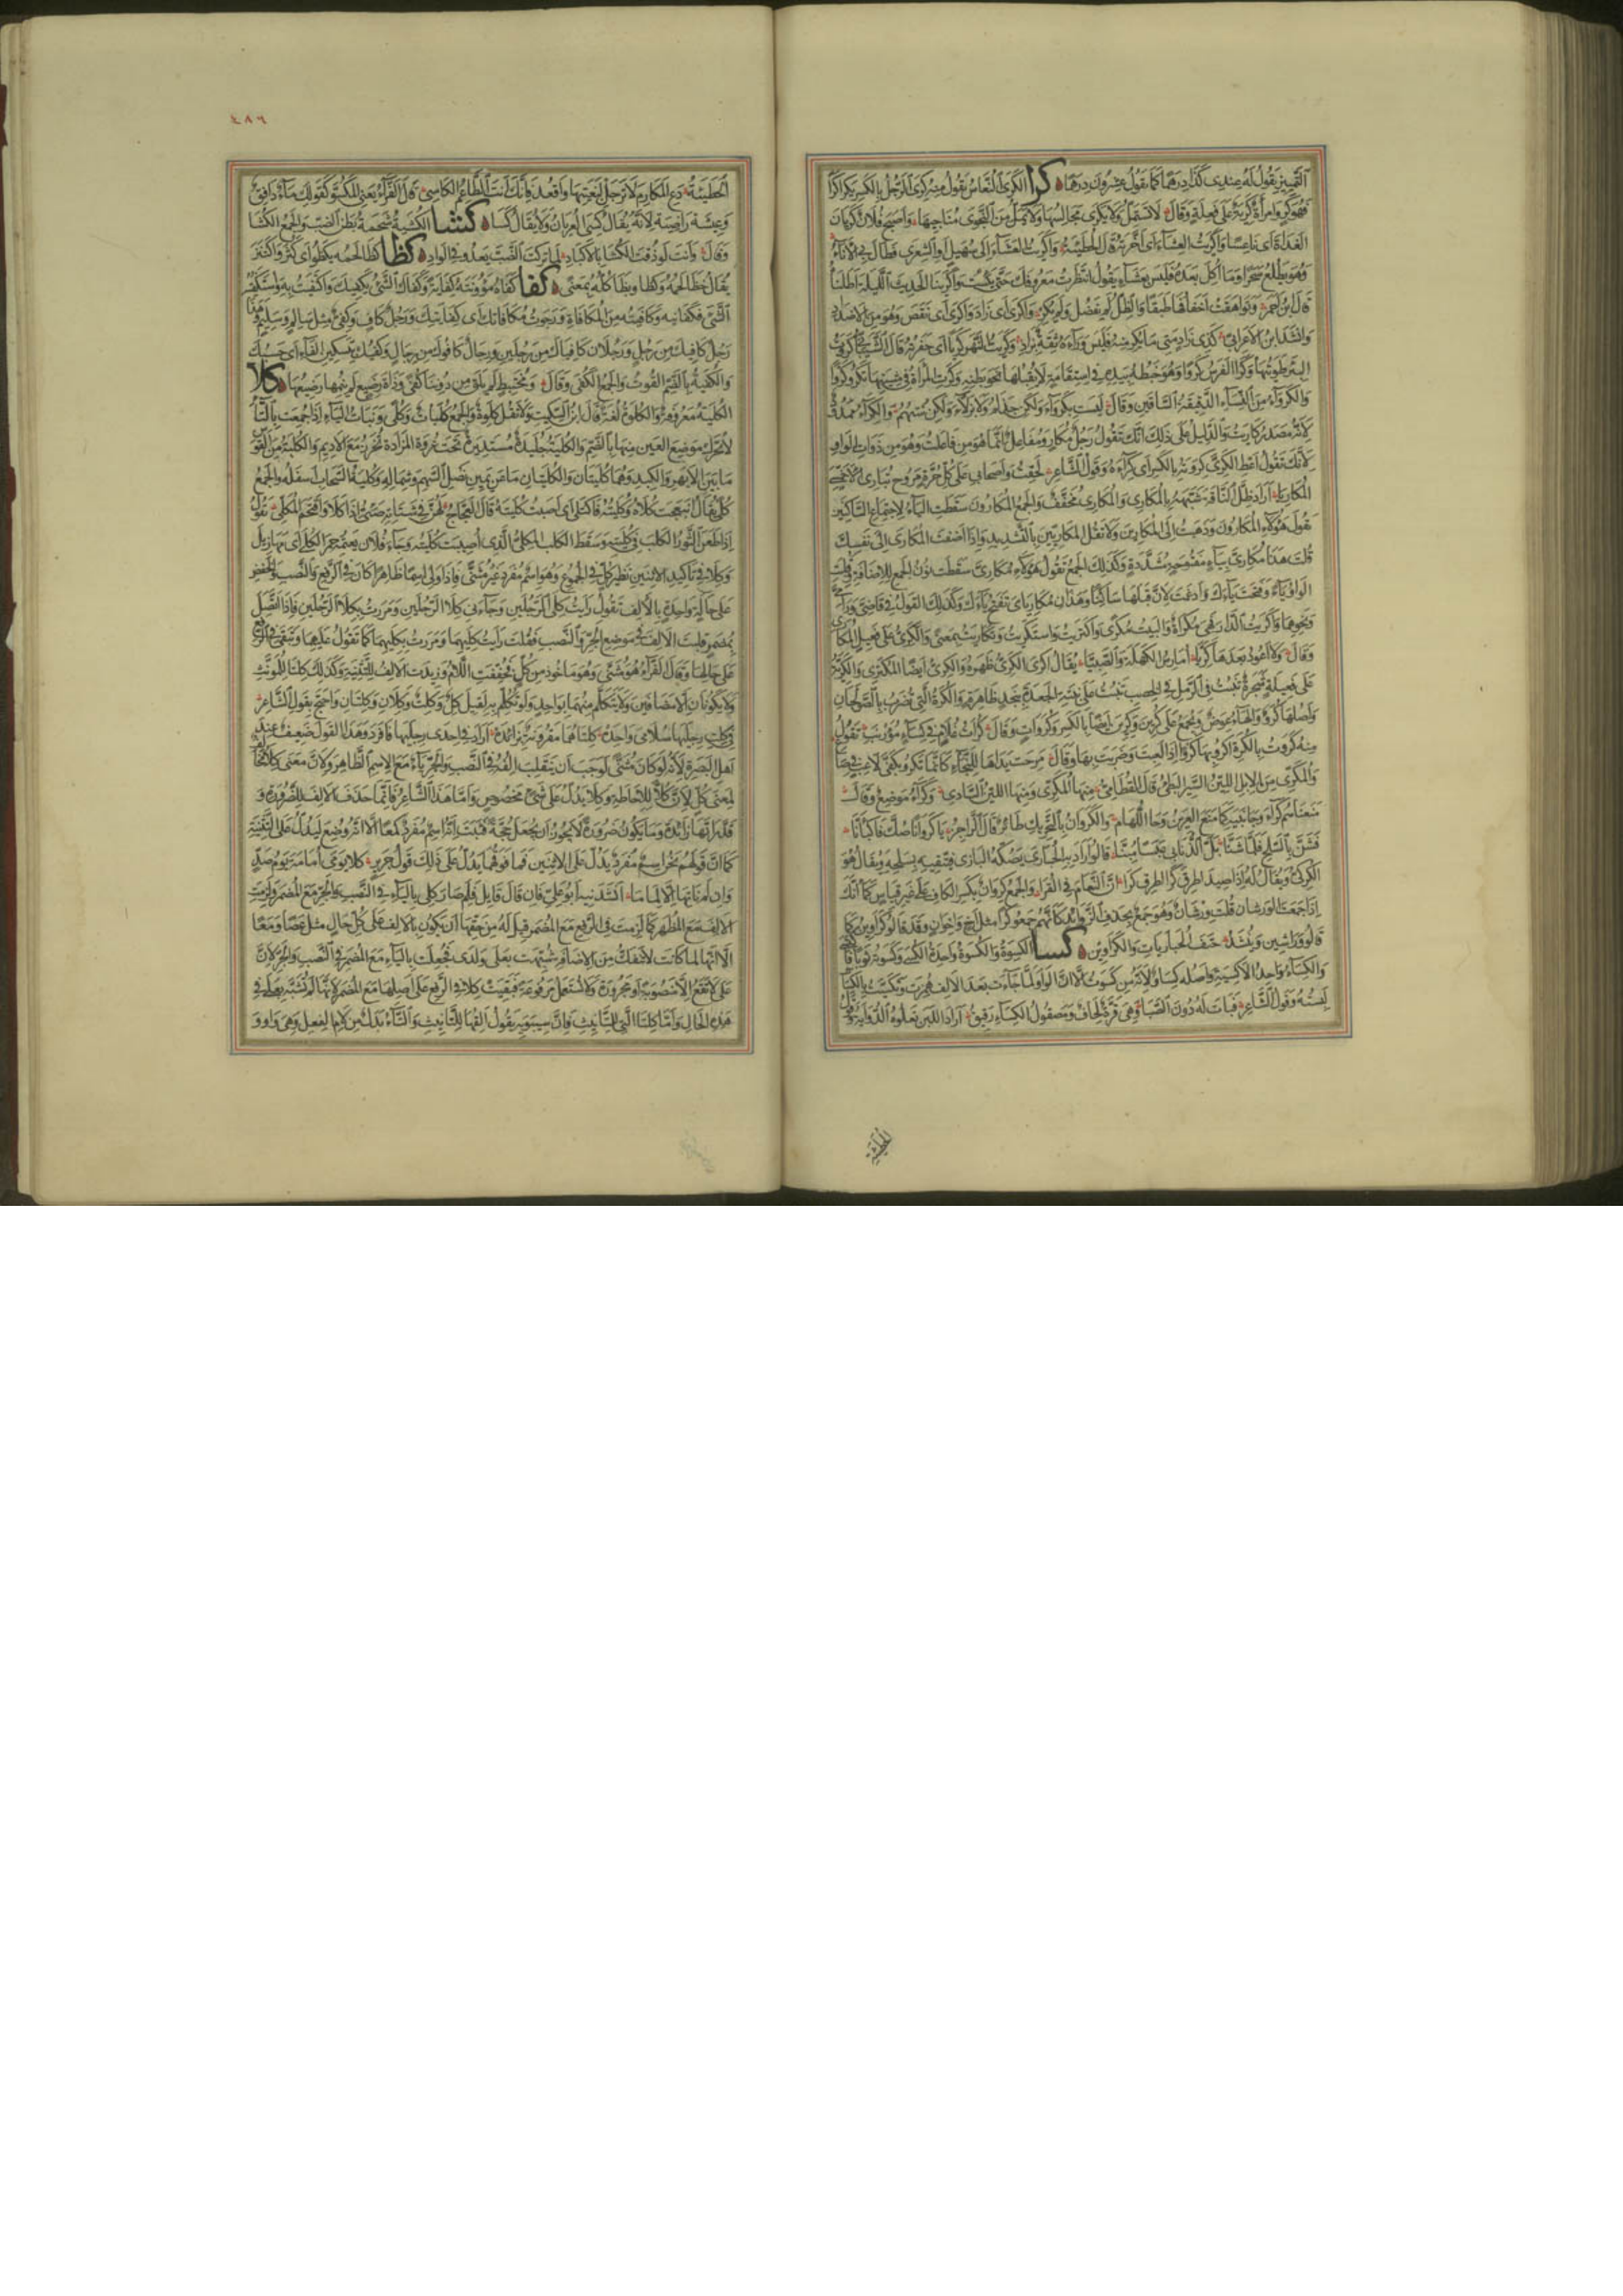 التمييز يقول له عندى كذا درهما كما تقول عشرون درهما كرا الكرى النعاس تقول منه كرى الرجل بالكسر يكرى كرا
فهو كر وامرأة كرية على فعلة وقال لا تستمل ولا يكرى مجالسها ولا يمل من النجوى مناجيها واصبح فلان كريان
الغداة اى ناعسا واكريت العشاء اى اخرته قال الحطيئة واكريت العشاء الى سهيل او الشعرى فطال بى الاناء
وهو يطلع سحرا وما اكل بعده فليس بعشاء يقول انتظرت معروفك حتى يئست واكرينا الحديث الليلة اى اطلنا
قال ابن احمر وتواهقت اخفافها طبقا والظل لم يفضل ولم يكر واكرى اى زاد واكرى اى نقص وهو من الاضداد
وانشد ابن الاعرابى كذى زاد متى ما يكر منه فليس وراءه ثقة بزاد وكريت النهر كريا اى حفرته
البئر طويتها وكرا الفرس كروا وهو خبطه بيده فى استقامة لا يقبلها نحو بطنه وكرت المرأة فى مشيتها تكرو كروا
والكرواء من النساء الدقيقة الساقين وقال ليست بكرواء ولكن خدلم ولا بزلاء ولكن ستهم والكراء ممدود
لانه مصدر كاريت والدليل على ذلك انك تقول رجل مكار ومفاعل انما هو من فاعلت وهو من ذوات الواو
لانك تقول اعط الكرى كروته بالكسر اى كراءه وقول الشاعر لحقت واصحابى على كل حرة مروح تبارى الاحمسى
المكاريا اراد ظل الناقة شبهه بالمكارى والمكارى مخفف والجمع المكارون سقطت الياء لاجتماع الساكنين
تقول هؤلاء المكارون وذهبت الى المكارين ولا تقل المكاريين بالتشديد واذا اضفت المكارى الى نفسك
قلت هذا مكارى بياء مفتوحة مشددة وكذلك الجمع تقول هؤلاء مكارى سقطت نون الجمع للاضافة وقلبت
الواو ياء وفتحت ياءك وادغمت لان قبلها ساكنا وهذان مكارياى تفتح ياءك وكذلك القول فى قاضى
ونحوهما واكريت الدار فهى مكراة والبيت مكرى واكتريت واستكريت وتكاريت بمعنى والكرى على فعيل المكارى
وقال ولا اعود بعدها كريا امارس الكهلة والصبيا يقال اكرى الكرى ظهره والكرى ايضا المكترى والكرية
على فعيلة شجرة تنبت فى الرمل فى الخصب تنبت على نبتة الجعدة بنجد ظاهرة والكرة التى تضرب بالصولجان
واصلها كرو والهاء عوض وتجمع على كرين وكرين ايضا بالكسر وكرات وقال كرات غلام فى كساء مؤرنب تقول
منه كروت بالكرة اكرو بها كروا اذا لعبت وضربت بها وقال مرحت يداها للنجاء كانما تكرو بكفى لاعب فى صاع
والمكرى من الابل اللين السير البطىء قال القطامى منها المكرى ومنها اللين السادى وكراء موضع وقال
منعناكم كراء وجانبيه كما منع العزيز وحا اللهام والكروان بالتحريك طائر قال الراجز يا كروانا صك فاكبأنا
فشن بالسلح فلما شنا بل الذنابى عبسا مبنا قالوا اراد به الحبارى يصكه البازى فيتقيه بسلحه ويقال هو
الكركى ويقال له اذا صيد اطرق كرا اطرق كرا ان النعام فى القرى والجمع كروان بكسر الكاف على غير قياس كما انك
اذا جمعت الورشان قلت ورشان وهو جمع بحذف الزوائد كانهم جمعوا كرا مثل اخ واخوان وقد قالوا كراوين كما
قالوا وراشين وينشد حتف الحباريات والكراوين كسا الكسوة والكسوة واحدة الكسى وكسوته ثوبا فاكتسى
والكساء واحد الاكسية واصله كساو لانه من كسوت الا ان الواو لما جاءت بعد الالف همزت وتكسيت بالكساء
لبسته وقول الشاعر فبات له دون الصبا وهى قرة لحاف ومصقول الكساء رقيق اراد اللبن تعلوه الدواية
الحطيئة
٤٨٦
الحطيئة دع المكارم لا ترحل لبغيتها واقعد فانك انت الطاعم الكاسى قال الفراء يعنى المكسو كقولك ماء دافق
وعيشة راضية لانه يقال كسى العريان ولا يقال كسا كشا الكشية شحمة بطن الضب والجمع الكشا
وقال وانت لو ذقت الكشا بالاكباد لما تركت الضب يعدو فى الواد كظا كظا لحمه يكظو اى كثر واكتنز
يقال خظا لحمه وكظا وبظا كله بمعنى كفا كفاه مؤونته كفاية وكفاك الشىء يكفيك واكتفيت به واستكفيته
الشىء فكفانيه وكافيته من المكافاة ورجوت مكافاتك اى كفايتك ورجل كاف وكفى مثل سالم وسليم هذا
رجل كافيك من رجل ورجلان كافياك من رجلين ورجال كافوك من رجال وكفيك بتسكين الفاء اى حسبك
والكفية بالضم القوت والجمع الكفى وقال ومختبط لم يلق من دوننا كفى وذات رضيع لم ينمها رضيعها كلا
الكلية معروفة والكلوة لغة قال ابن السكيت ولا تقل كلوة والجمع كليات وكلى وبنات الياء اذا جمعت بالتاء
لا تحرك موضع العين منها بالضم والكلية جليدة مستديرة تحت عروة المزادة تخرز مع الاديم والكلية من القوس
ما بين الابهر والكبد وهما كليتان والكليتان ما عن يمين نصل السهم وشماله وكلية السحاب اسفله والجمع
كلى يقال انبعجت كلاه وكليته فاكتلى اى اصبت كليته قال العجاج لهن فى شباته صئى اذا كلا واقتحم المكلى تقول
اذا طعن الثور الكلب فى كليته وسقط الكلب المكلى الذى اصيبت كليته وجاء فلان بغنمه حمر الكلى اى مهازيل
وكلا فى تاكيد الاثنين نظير كل فى الجموع وهو اسم مفرد غير مثنى فاذا ولى اسما ظاهرا كان فى الرفع والنصب والخفض
على حالة واحدة بالالف تقول رايت كلى الرجلين وجاءنى كلا الرجلين ومررت بكلا الرجلين فاذا اتصل
بمضمر قلبت الالف فى موضع الجر والنصب فقلت رايت كليهما ومررت بكليهما كما تقول عليهما وتبقى فى الرفع
على حالها وقال الفراء هو مثنى وهو ماخوذ من كل فخففت اللام وزيدت الالف للتثنية وكذلك كلتا للمؤنث
ولا يكونان الا مضافين ولا يتكلم منهما بواحد ولو تكلم به لقيل كل وكلت وكلان وكلتان واحتج بقول الشاعر
فى كلت رجليها سلامى واحدة كلتاهما مقرونة بزائدة اراد فى احدى رجليها فافرد وهذا القول ضعيف عند
اهل البصرة لانه لو كان مثنى لوجب ان تنقلب الفه فى النصب والجر ياء مع الاسم الظاهر ولان معنى كلا مخالف
لمعنى كل لان كلا للاحاطة وكلا يدل على شىء مخصوص واما هذا الشاعر فانما حذف الالف للضرورة و
قدر انها زائدة وما يكون ضرورة لا يجوز ان يجعل حجة فثبت انه اسم مفرد كمعا الا انه وضع ليدل على التثنية
كما ان قولهم نحن اسم مفرد يدل على الاثنين فما فوقهما يدل على ذلك قول جرير كلا يومى امامة يوم صد
وان لم ناتها الا لماما انشدنيه ابو على فان قال قايل فلم صار كلى بالياء فى النصب والجر مع المضمر ولزمت
الالف مع المظهر كما لزمت فى الرفع مع المضمر قيل له من حقها ان يكون بالالف على كل حال مثل عصا ومعا
الا انها لما كانت لا تنفك من الاضافة شبهت بعلى ولدى فجعلت بالياء مع المضمر فى النصب والجر لان
على لا تقع الا منصوبة او مجرورة ولا تستعمل مرفوعة فبقيت كلا فى الرفع على اصلها مع المضمر لانها لم تشبه بعلى فى
هذه الحال واما كلتا التى للتانيث فان سيبويه يقول الفها للتانيث والتاء بدل من لام الفعل وهى واو و